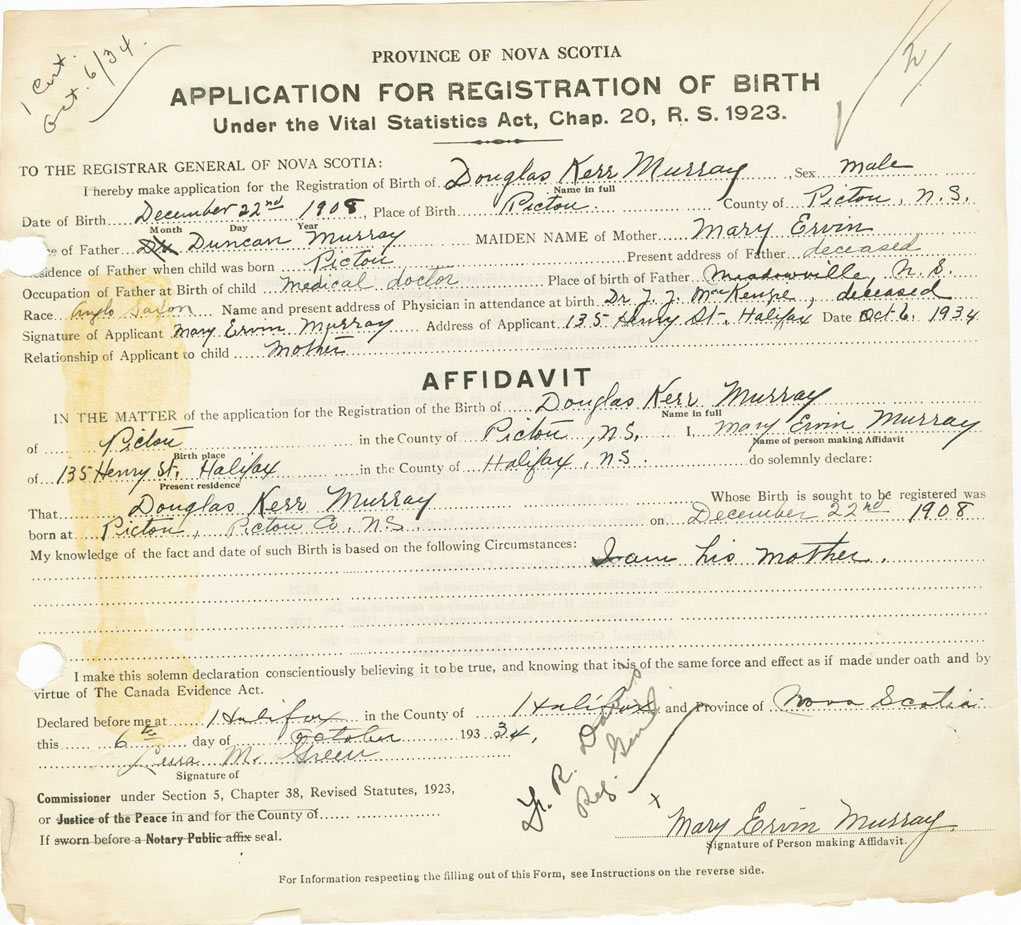 1 Cert.
Oct. 6/34.
2
PROVINCE OF NOVA SCOTIA
APPLICATION FOR REGISTRATION OF BIRTH
Under the Vital Statistics Act, Chap. 20, R. S. 1923.
TO THE REGISTRAR GENERAL OF NOVA SCOTIA:
I hereby make application for the Registration of Birth of Douglas Kerr Murray, Sex male
Name in full
Date of Birth December 22nd 1908, Place of Birth Pictou. County of Pictou, N.S.
Month Day Year
e of Father Duncan Murray MAIDEN NAME of Mother Mary Ervin
esidence of Father when child was born Pictou Present address of Father deceased
Occupation of Father at Birth of child medical doctor Place of birth of Father Meadowville, N.S.
Race Anglo Saxon Name and present address of Physician in attendance at birth Dr J. J. MacKenzie, deceased
Signature of Applicant Mary Ervin Murray Address of Applicant 135 Henry St, Halifax Date Oct 6, 1934
Relationship of Applicant to child mother
AFFIDAVIT
IN THE MATTER of the application for the Registration of the Birth of Douglas Kerr Murray
Name in full
of Pictou in the County of Pictou, N.S. I, Mary Ervin Murray
Birth place Name of person making Affidavit
of 135 Henry St, Halifax in the County of Halifax, N.S. do solemnly declare:
Present residence
That Douglas Kerr Murray Whose Birth is sought to be registered was
born at Pictou, Pictou Co, N.S. on December 22nd 1908
My knowledge of the fact and date of such Birth is based on the following Circumstances: I am his mother.
I make this solemn declaration conscientiously believing it to be true, and knowing that it is of the same force and effect as if made under oath and by
virtue of The Canada Evidence Act.
Declared before me at Halifax in the County of Halifax and Province of Nova Scotia
this 6th day of October 193 34,
M. Green
Signature of
Reg. Gen'l
Commissioner under Section 5, Chapter 38, Revised Statutes, 1923,
or Justice of the Peace in and for the County of
If sworn before a Notary Public affix seal.
x Mary Ervin Murray
Signature of Person making Affidavit.
For Information respecting the filling out of this Form, see Instructions on the reverse side.